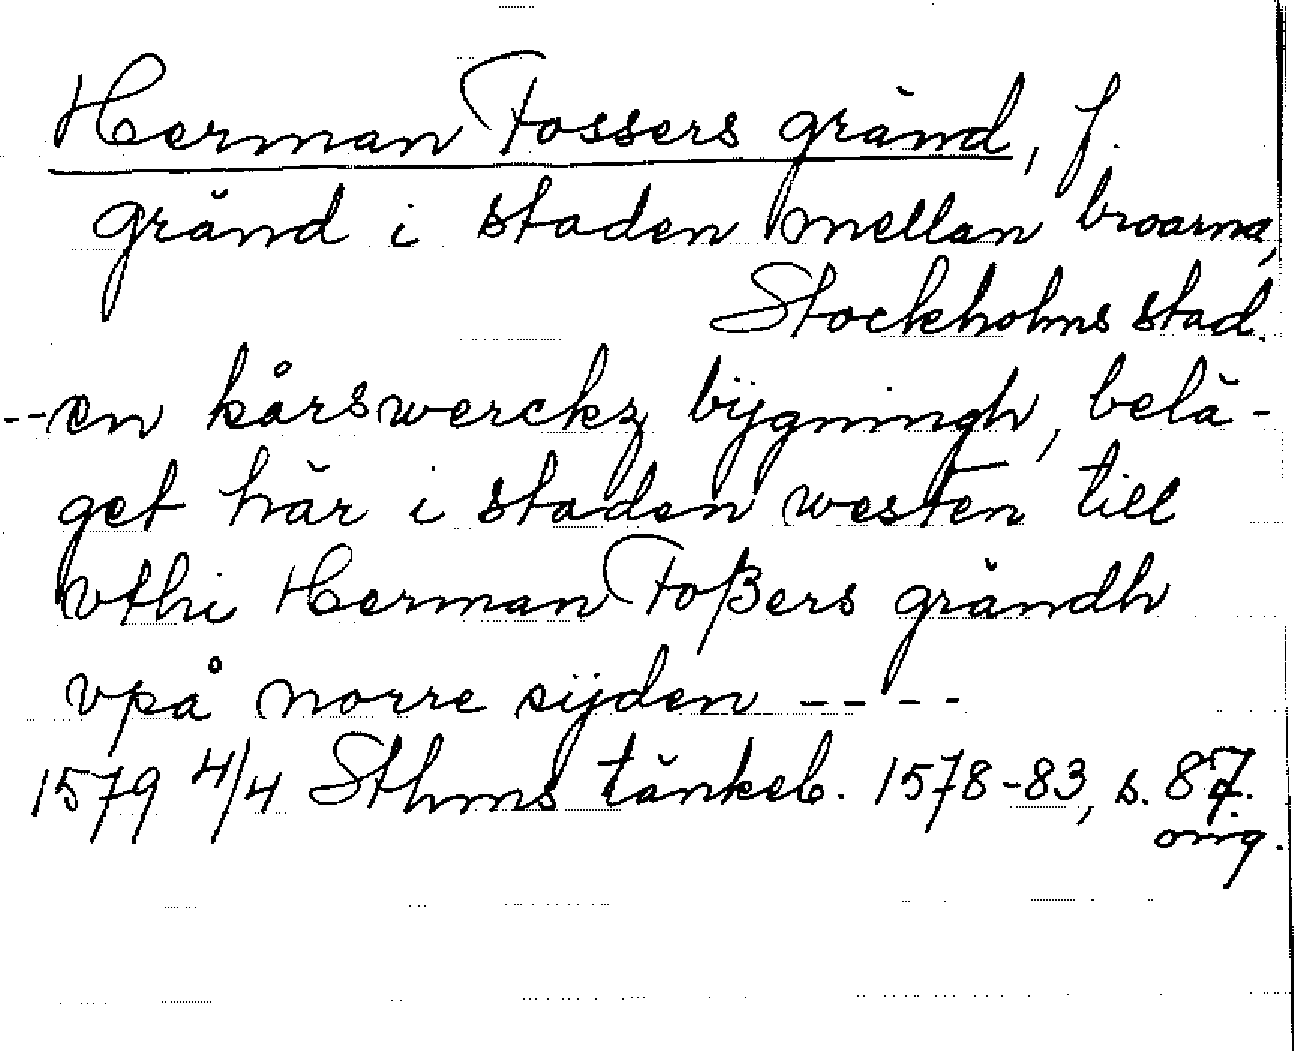 Herman Fossers gränd, f.
gränd i staden mellan broarna,
Stockholms stad.
--en kårswerckz bÿgningh, belä-
get här i staden westen till
vthi Herman Foßers grändh
vpå norre sÿden ----
1579 4/4 Sthms tänkeb. 1578-83, s. 87.
orig.